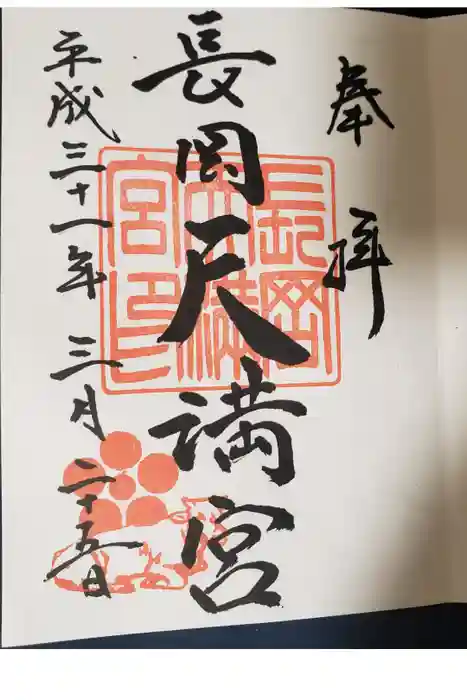 奉拝
長岡天満宮
平成三十一年三月二十五日
長岡
天満
宮印